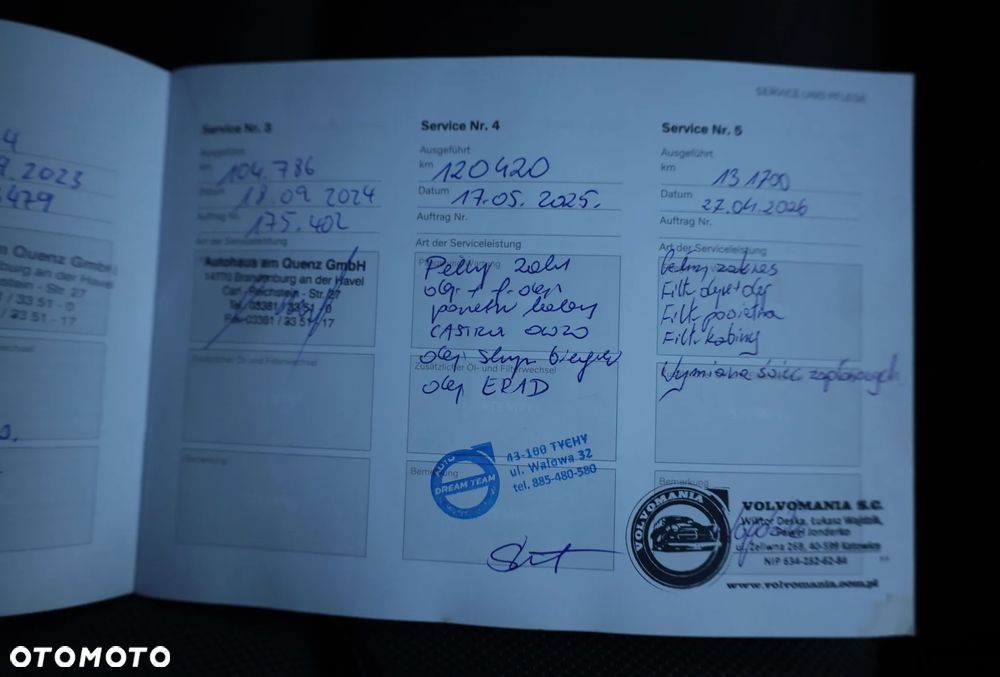 4
9.2023
3479
am Quenz GmbH
nburg an der Havel
nstein - Str. 27
1 / 33 51 - 0
/ 33 51 - 17
SERVICE UND PFLEGE
Service Nr. 3
Ausgeführt
km 104.786
Datum 18.09 2024
Auftrag Nr. 175.402
Art der Serviceleistung
Autohaus am Quenz GmbH
14770 Brandenburg an der Havel
Carl - Reichstein - Str. 27
Tel. 03381 / 33 51 - 0
Fax 03381 / 33 51 - 17
Zusätzlicher Öl- und Filterwechsel
Bemerkung
Service Nr. 4
Ausgeführt
km 120420
Datum 17.05. 2025.
Auftrag Nr.
Art der Serviceleistung
CASTROL 0W20
Zusätzlicher Öl- und Filterwechsel
olej ERAD
Bemerkung
AUTO
DREAM TEAM
43-100 TYCHY
ul. Wałowa 32
tel. 885-480-580
Service Nr. 5
Ausgeführt
km 131700
Datum 27.04.2026
Auftrag Nr.
Art der Serviceleistung
Pełny zakres
Filt. oleju + olej
Filt powietrza
Filt kabiny
Wymiana świec zapłonowych
Bemerkung
VOLVOMANIA
VOLVOMANIA S.C.
Wiktor Deska, Łukasz
ul. Żeliwna 26B, 40-599 Katowice
NIP 634-282-62-84
www.volvomania.com.pl
OTOMOTO